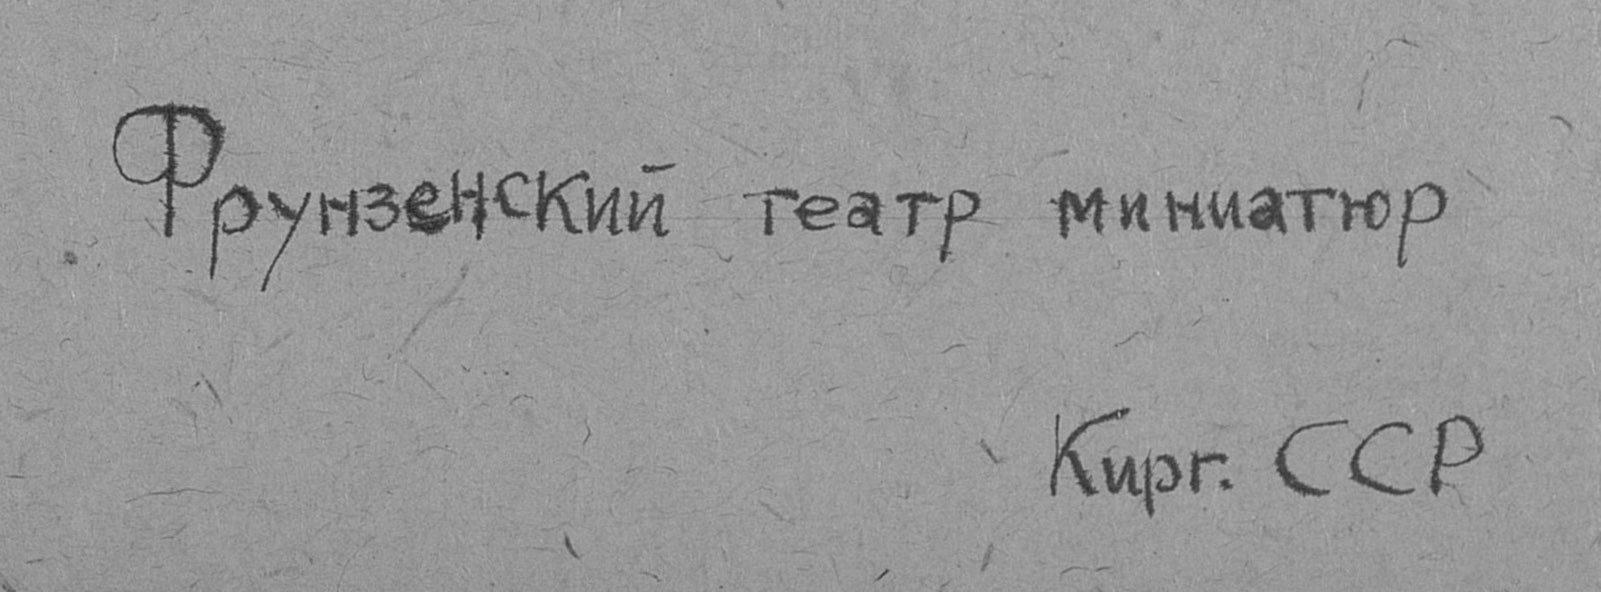 Фрунзенский театр миниатюр
Кирг. ССР